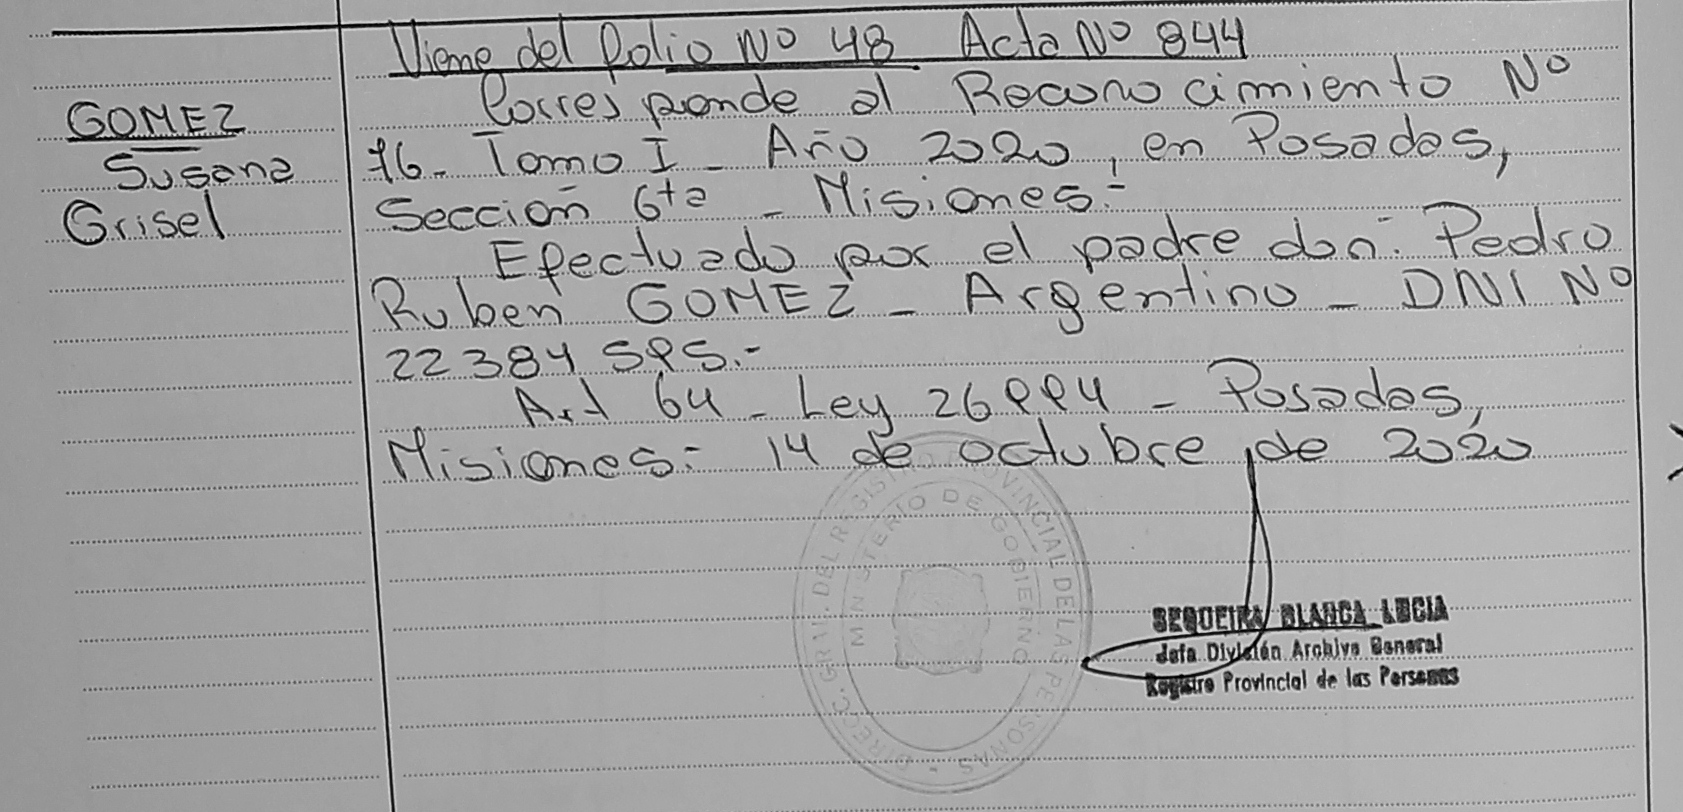 Viene del Folio Nº 48 Acta Nº 844
GOMEZ
Susana
Grisel
Corresponde al Reconocimiento Nº
76- Tomo I - Año 2020, en Posadas,
Sección 6ta - Misiones:-
Efectuado por el padre don: Pedro
Ruben GOMEZ - Argentino - DNI Nº
22384595.-
Art 64 - Ley 26994 - Posadas,
Misiones: 14 de octubre de 2020
DIRECC. GRAL. DEL REGISTRO PROVINCIAL DE LAS PERSONAS
MINISTERIO DE GOBIERNO
SEQUEIRA BLANCA LUCIA
Jefa División Archivo General
Registro Provincial de las Personas